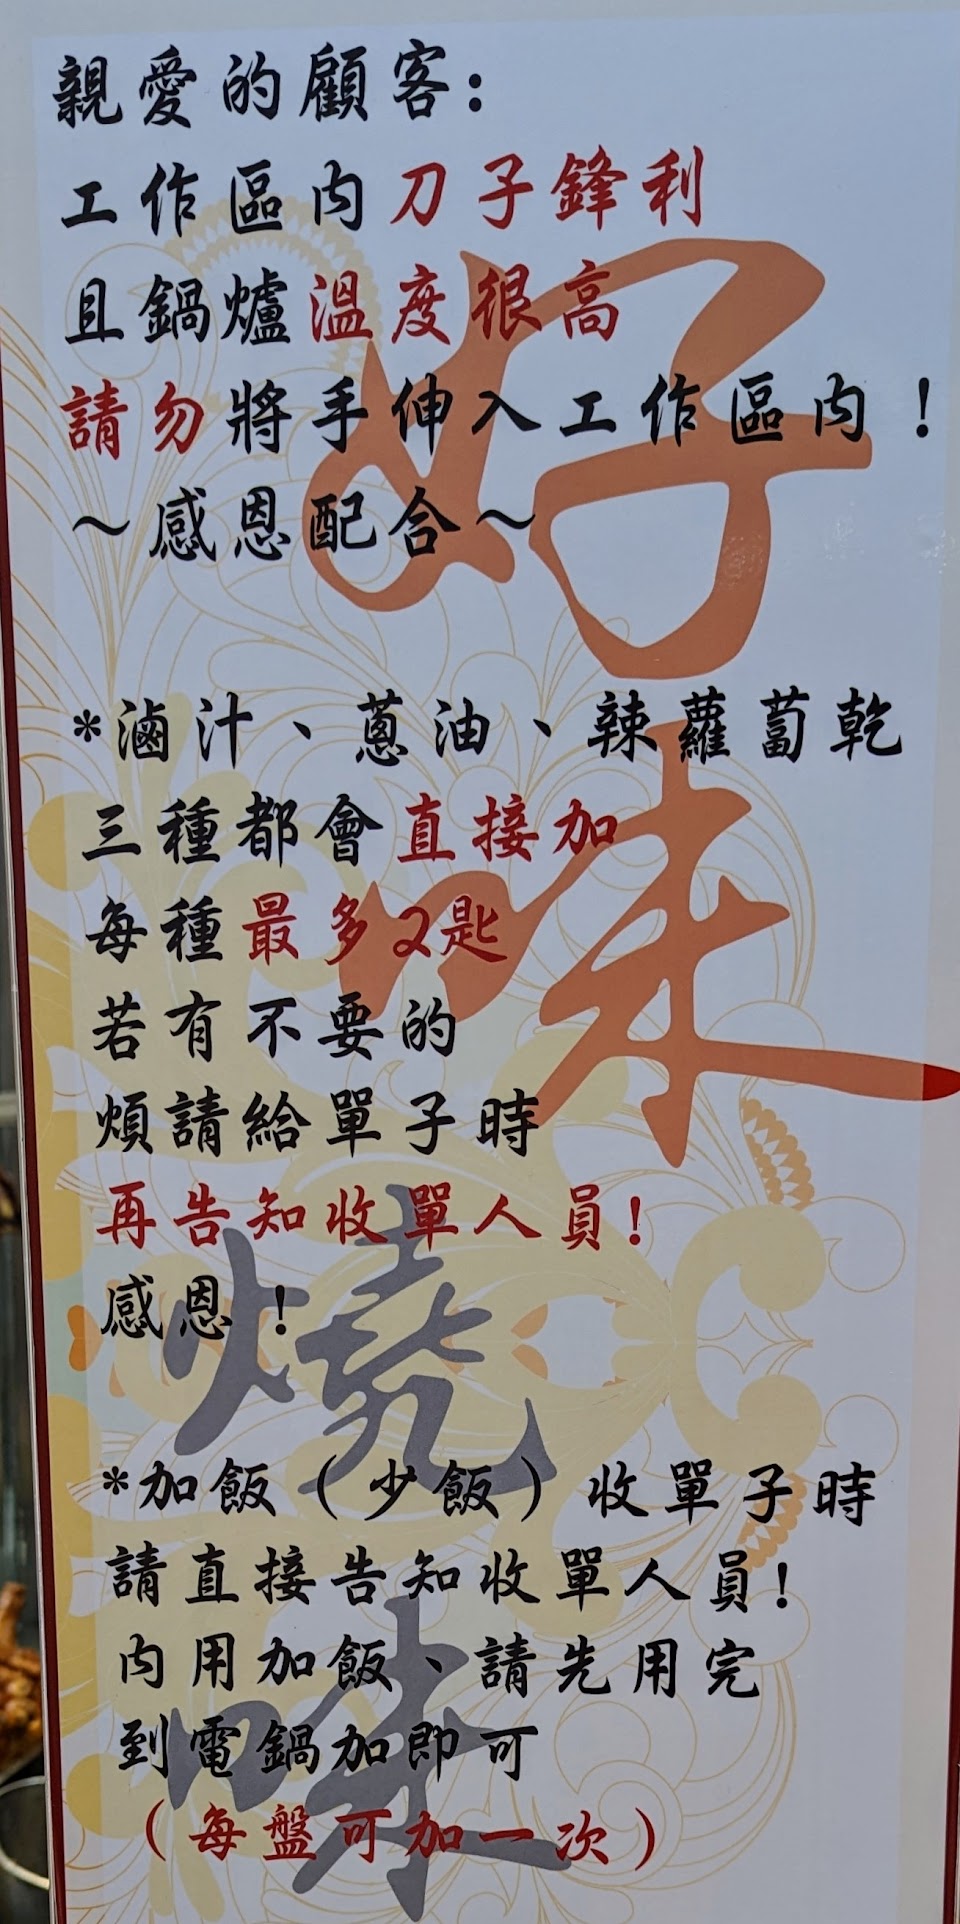 親愛的顧客:
工作區內刀子鋒利
且鍋爐溫度很高
請勿將手伸入工作區內！
～感恩配合～
*滷汁、蔥油、辣蘿蔔乾
三種都會直接加
每種最多2匙
若有不要的
煩請給單子時
再告知收單人員!
感恩！
*加飯（少飯）收單子時
請直接告知收單人員!
內用加飯、請先用完
到電鍋加即可
（每盤可加一次）
好味燒味